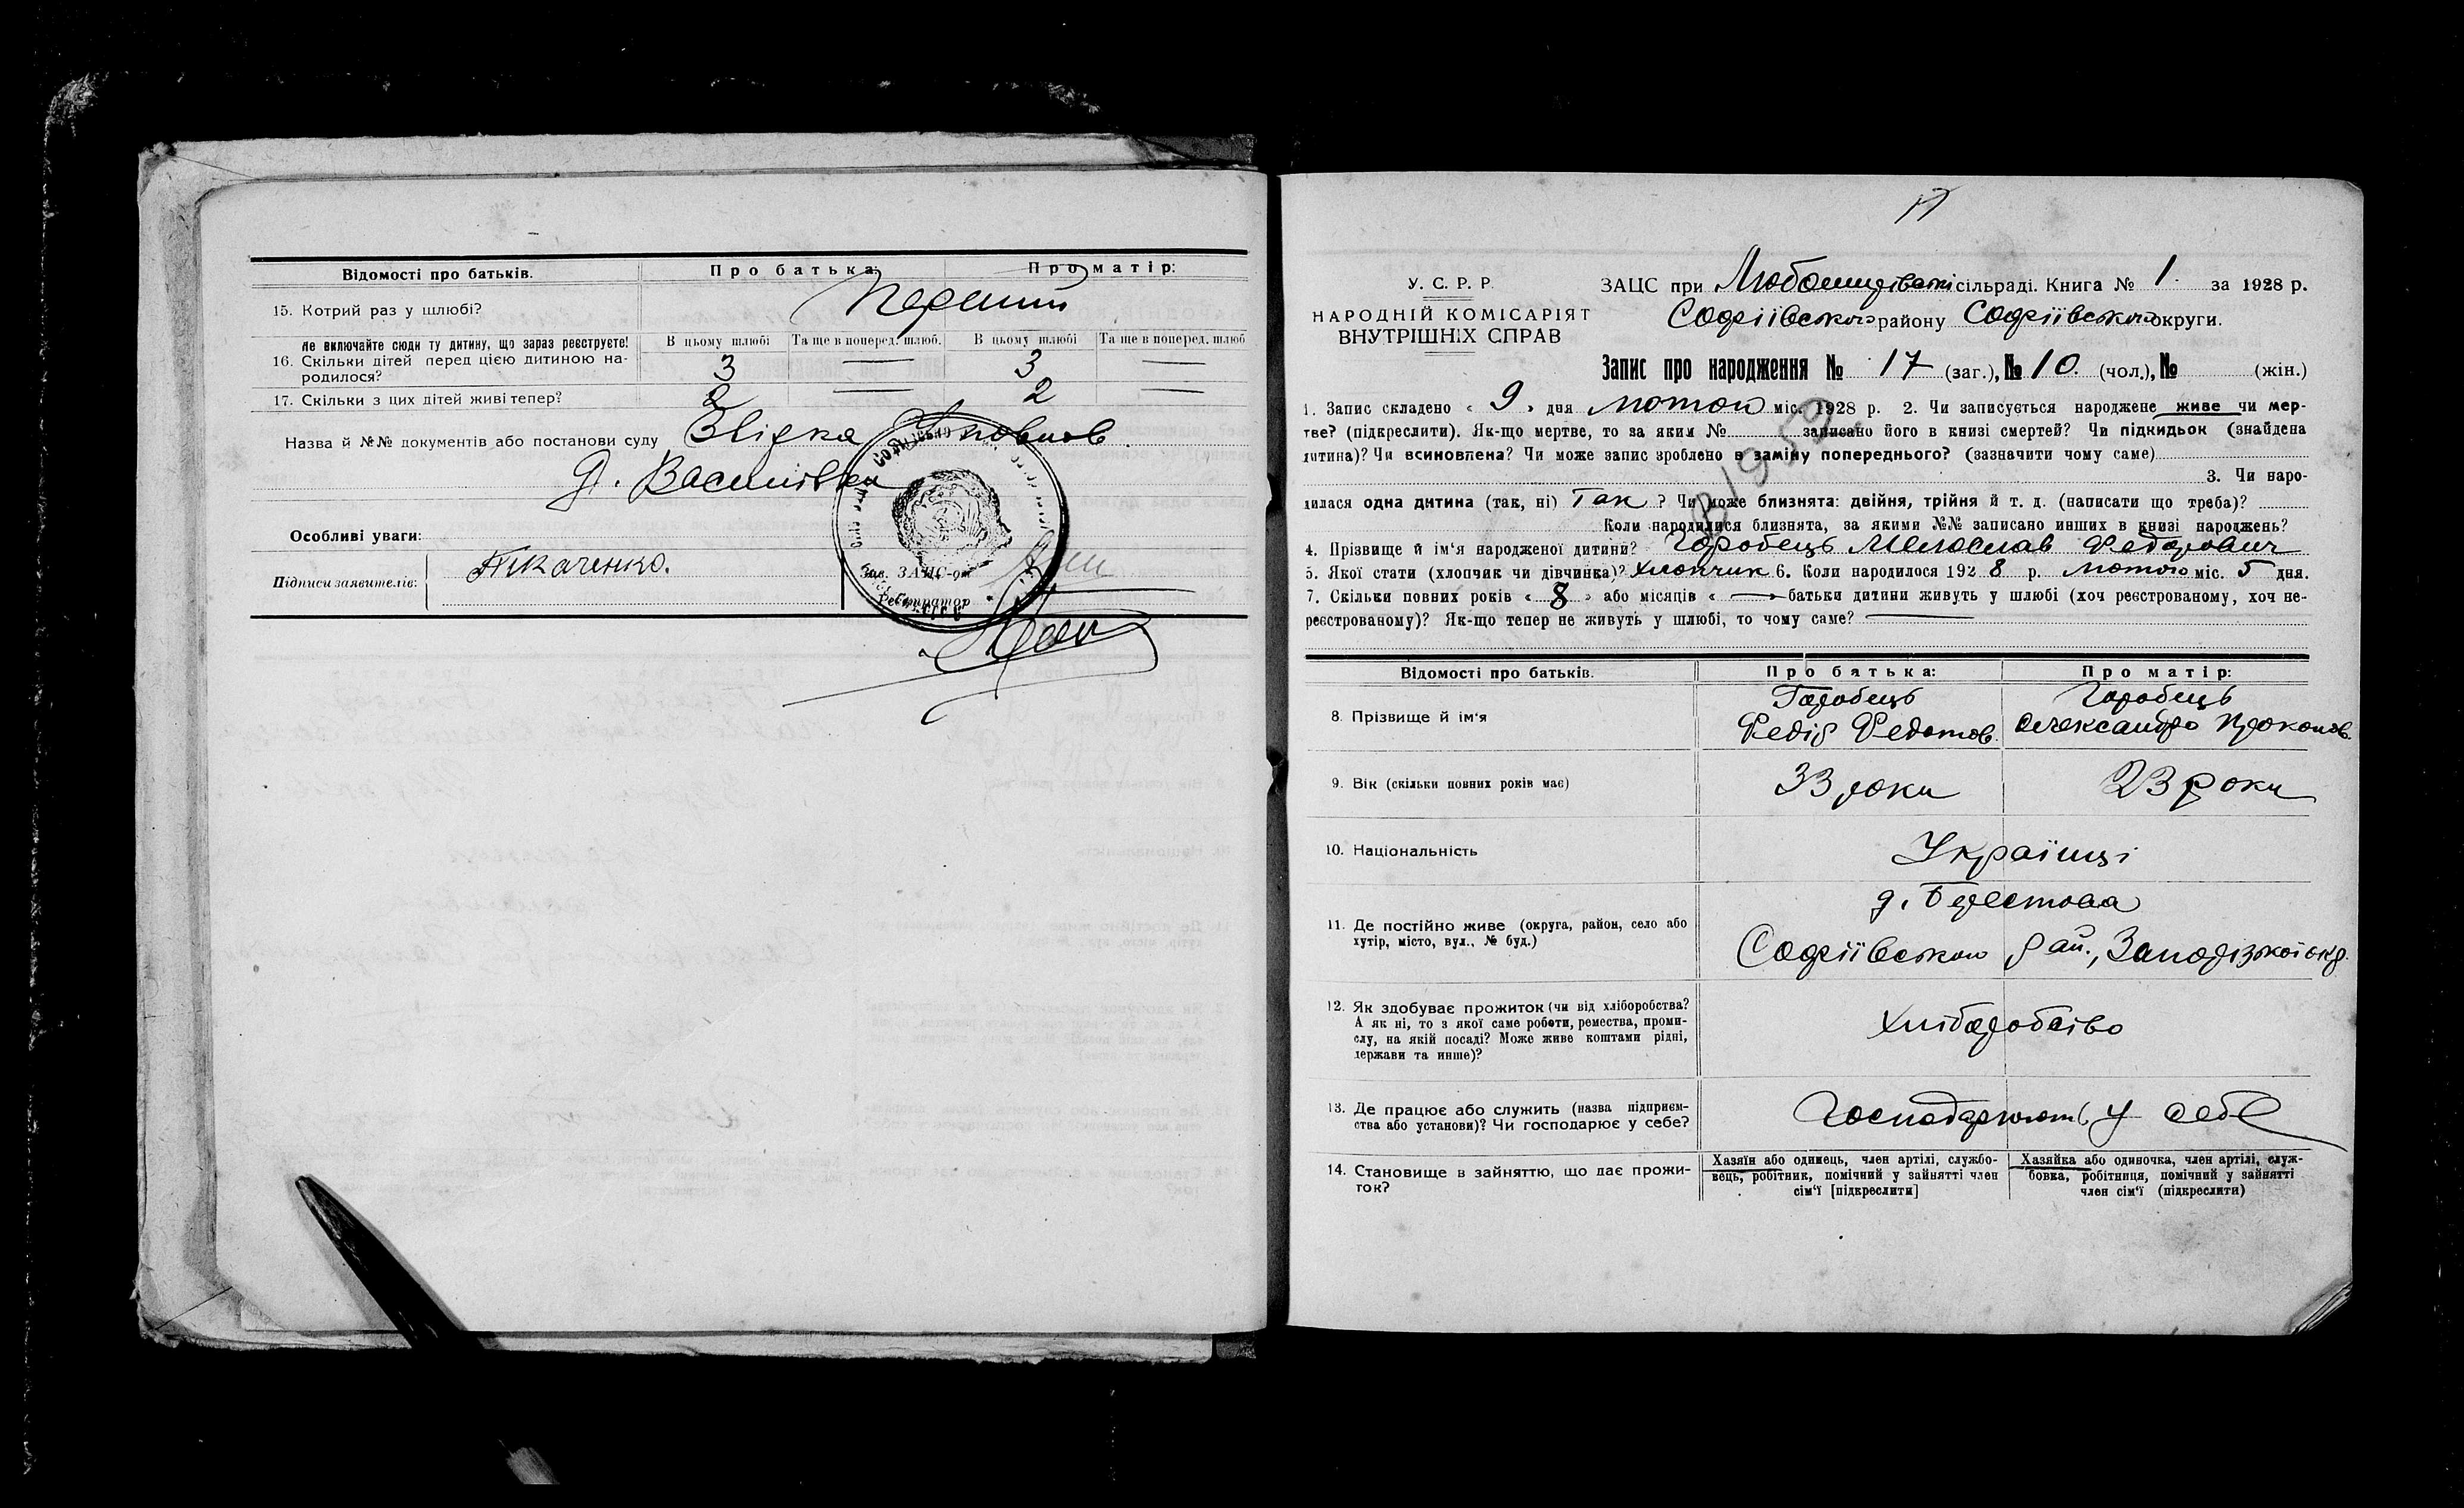 Відомості про батьків.
Про батька:
Про матір:
15. Котрий раз у шлюбі?
Перший
Не включайте сюди ту дитину, що зараз реєструєте!
В цьому шлюбі
Та ще в поперед. шлюб.
В цьому шлюбі
Та ще в поперед. шлюб
16. Скільки дітей перед цією дитиною на-
родилося?
3 — 3 —
17. Скільки з цих дітей живі тепер?
2 — 2 —
Назва й №№ документів або постанови суду
д. Василівка
Особливі уваги:
Підписи заявителів:
Ткаченко.
Зав. ЗАЦС-ом
Реєстратор
У. С. Р. Р.
НАРОДНІЙ КОМІСАРІЯТ
ВНУТРІШНІХ СПРАВ
ЗАЦС при сільраді. Книга № 1. за 1928 р.
Софіївського району Софіївського округи.
Запис про народження № 17 (заг.), № 10. (чол.), № (жін.)
1. Запис складено « 9 » дня лютого міс. 1928 р. 2. Чи записується народжене живе чи мер-
тве? (підкреслити). Як-що мертве, то за яким № записано його в книзі смертей? Чи підкидьок (знайдена
дитина)? Чи всиновлена? Чи може запис зроблено в заміну попереднього? (зазначити чому саме)
3. Чи наро-
дилася одна дитина (так, ні) Так ? Чи може близнята: двійня, трійня й т. д. (написати що треба)?
Коли народилися близнята, за якими №№ записано инших в книзі народжень?
4. Прізвище й ім'я народженої дитини? Горобець Мелослав Федорович
5. Якої стати (хлопчик чи дівчинка)? Хлопчик 6. Коли народилося 1928 р. лютого міс. 5 дня.
7. Скільки повних років « 8 » або місяців « — » батьки дитини живуть у шлюбі (хоч реєстрованому, хоч не-
реєстрованому)? Як-що тепер не живуть у шлюбі, то чому саме? —
Відомості про батьків.
Про батька:
Про матір:
8. Прізвище й ім'я
Горобець
Федір Федотов.
Горобець
Олександра Прокопов.
9. Вік (скільки повних років має)
33 роки
23 роки
10. Національність
Українці
11. Де постійно живе (округа, район, село або
хутір, місто, вул., № буд.)
д. Берестова
Софіївського рай., Запорізької окр.
12. Як здобуває прожиток (чи від хліборобства?
А як ні, то з якої саме роботи, ремества, проми-
слу, на якій посаді? Може живе коштами рідні,
держави та инше)?
Хліборобство
13. Де працює або служить (назва підприєм-
ства або установи)? Чи господарює у себе?
Господарюють у себе
14. Становище в зайняттю, що дає прожи-
ток?
Хазяїн або одинець, член артілі, службо-
вець, робітник, помічний у зайнятті член
сім'ї [підкреслити]
Хазяйка або одиночка, член артілі, служ-
бовка, робітниця, помічний у зайнятті
член сім'ї (підкреслити)